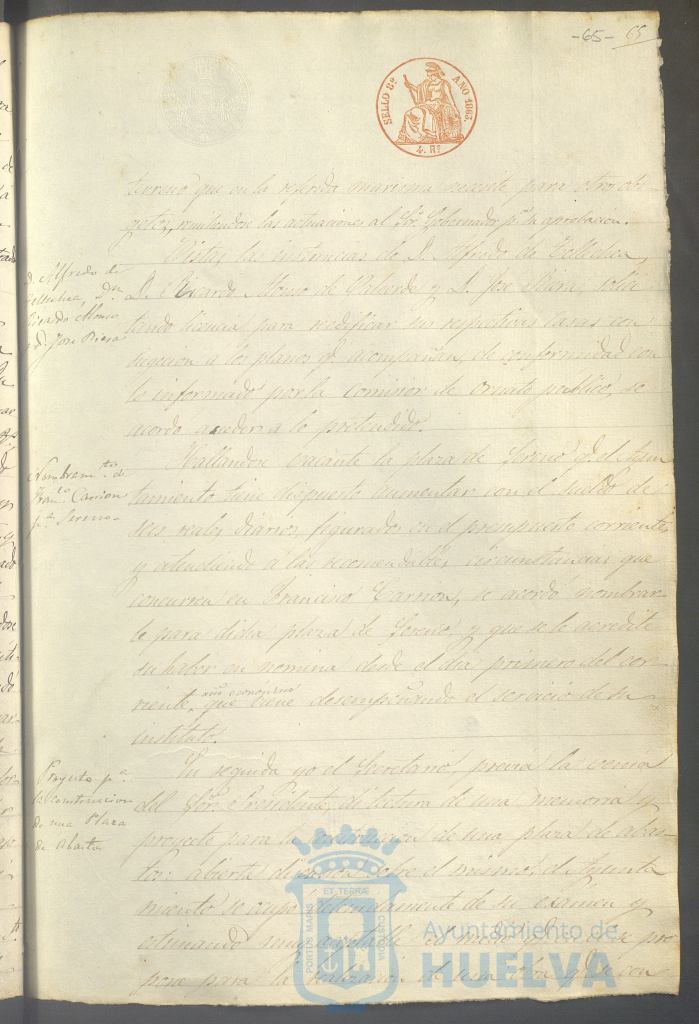 -65- 65
SELLO 8º AÑO 1863.
4. Rs
terreno que en la referida marisma necesite para otros ob-
getos, remitiendose las actuaciones al Sor. Gobernador pª su aprobacion.
D. Alfredo de
Dn
Ricardo Alonso
y D. Jose Riera
Vistas las instancias de D. Alfredo de
D. Ricardo Alonso de y D. Jose Riera, solici-
tando licencia para reedificar sus respectivas casas con
sugecion a los planos qe acompañan, de conformidad con
lo informado por la comision de ornato publico, se
acordó acceder a lo pretendido.
Nombramto de
Franco Carrion
pª Sereno-
Hallandose vacante la plaza de Sereno qe el Ayun
tamiento tiene dispuesto aumentar con el sueldo de
seis reales diarios, figurados en el presupuesto corriente,
y atendiendo á las recomendables circunstancias que
concurren en Francisco Carrion, se acordó nombrar-
le para dicha plaza de Sereno, y que se le acredite
su haber en nomina desde el dia primero del cor-
riente, año económico que viene desempeñando el servicio de su
instituto.
Proyecto pª
la construccion
de una Plaza
de Abastos
En seguida yo el Secretario, previa la venia
del Sor. Presidente, di lectura de una memoria y
proyecto para la construccion de una plaza de abas-
tos: abierta discusion sobre el mismo, el Ayunta
miento se ocupó detenidamente de su examen y
estimando muy aceptable el medio que se pro
pone para la realizacion de una obra qe
PORTUS MARIS ET TERRAE CUSTODIA
Ayuntamiento de
HUELVA